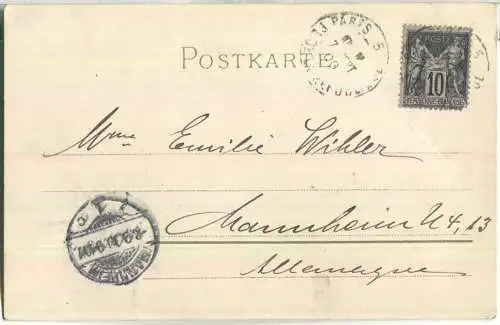 POSTKARTE
PARIS 5
POSTES
10
Mme Emilie Wihler
Mannheim U 4, 13
MANNHEIM
Allemagne